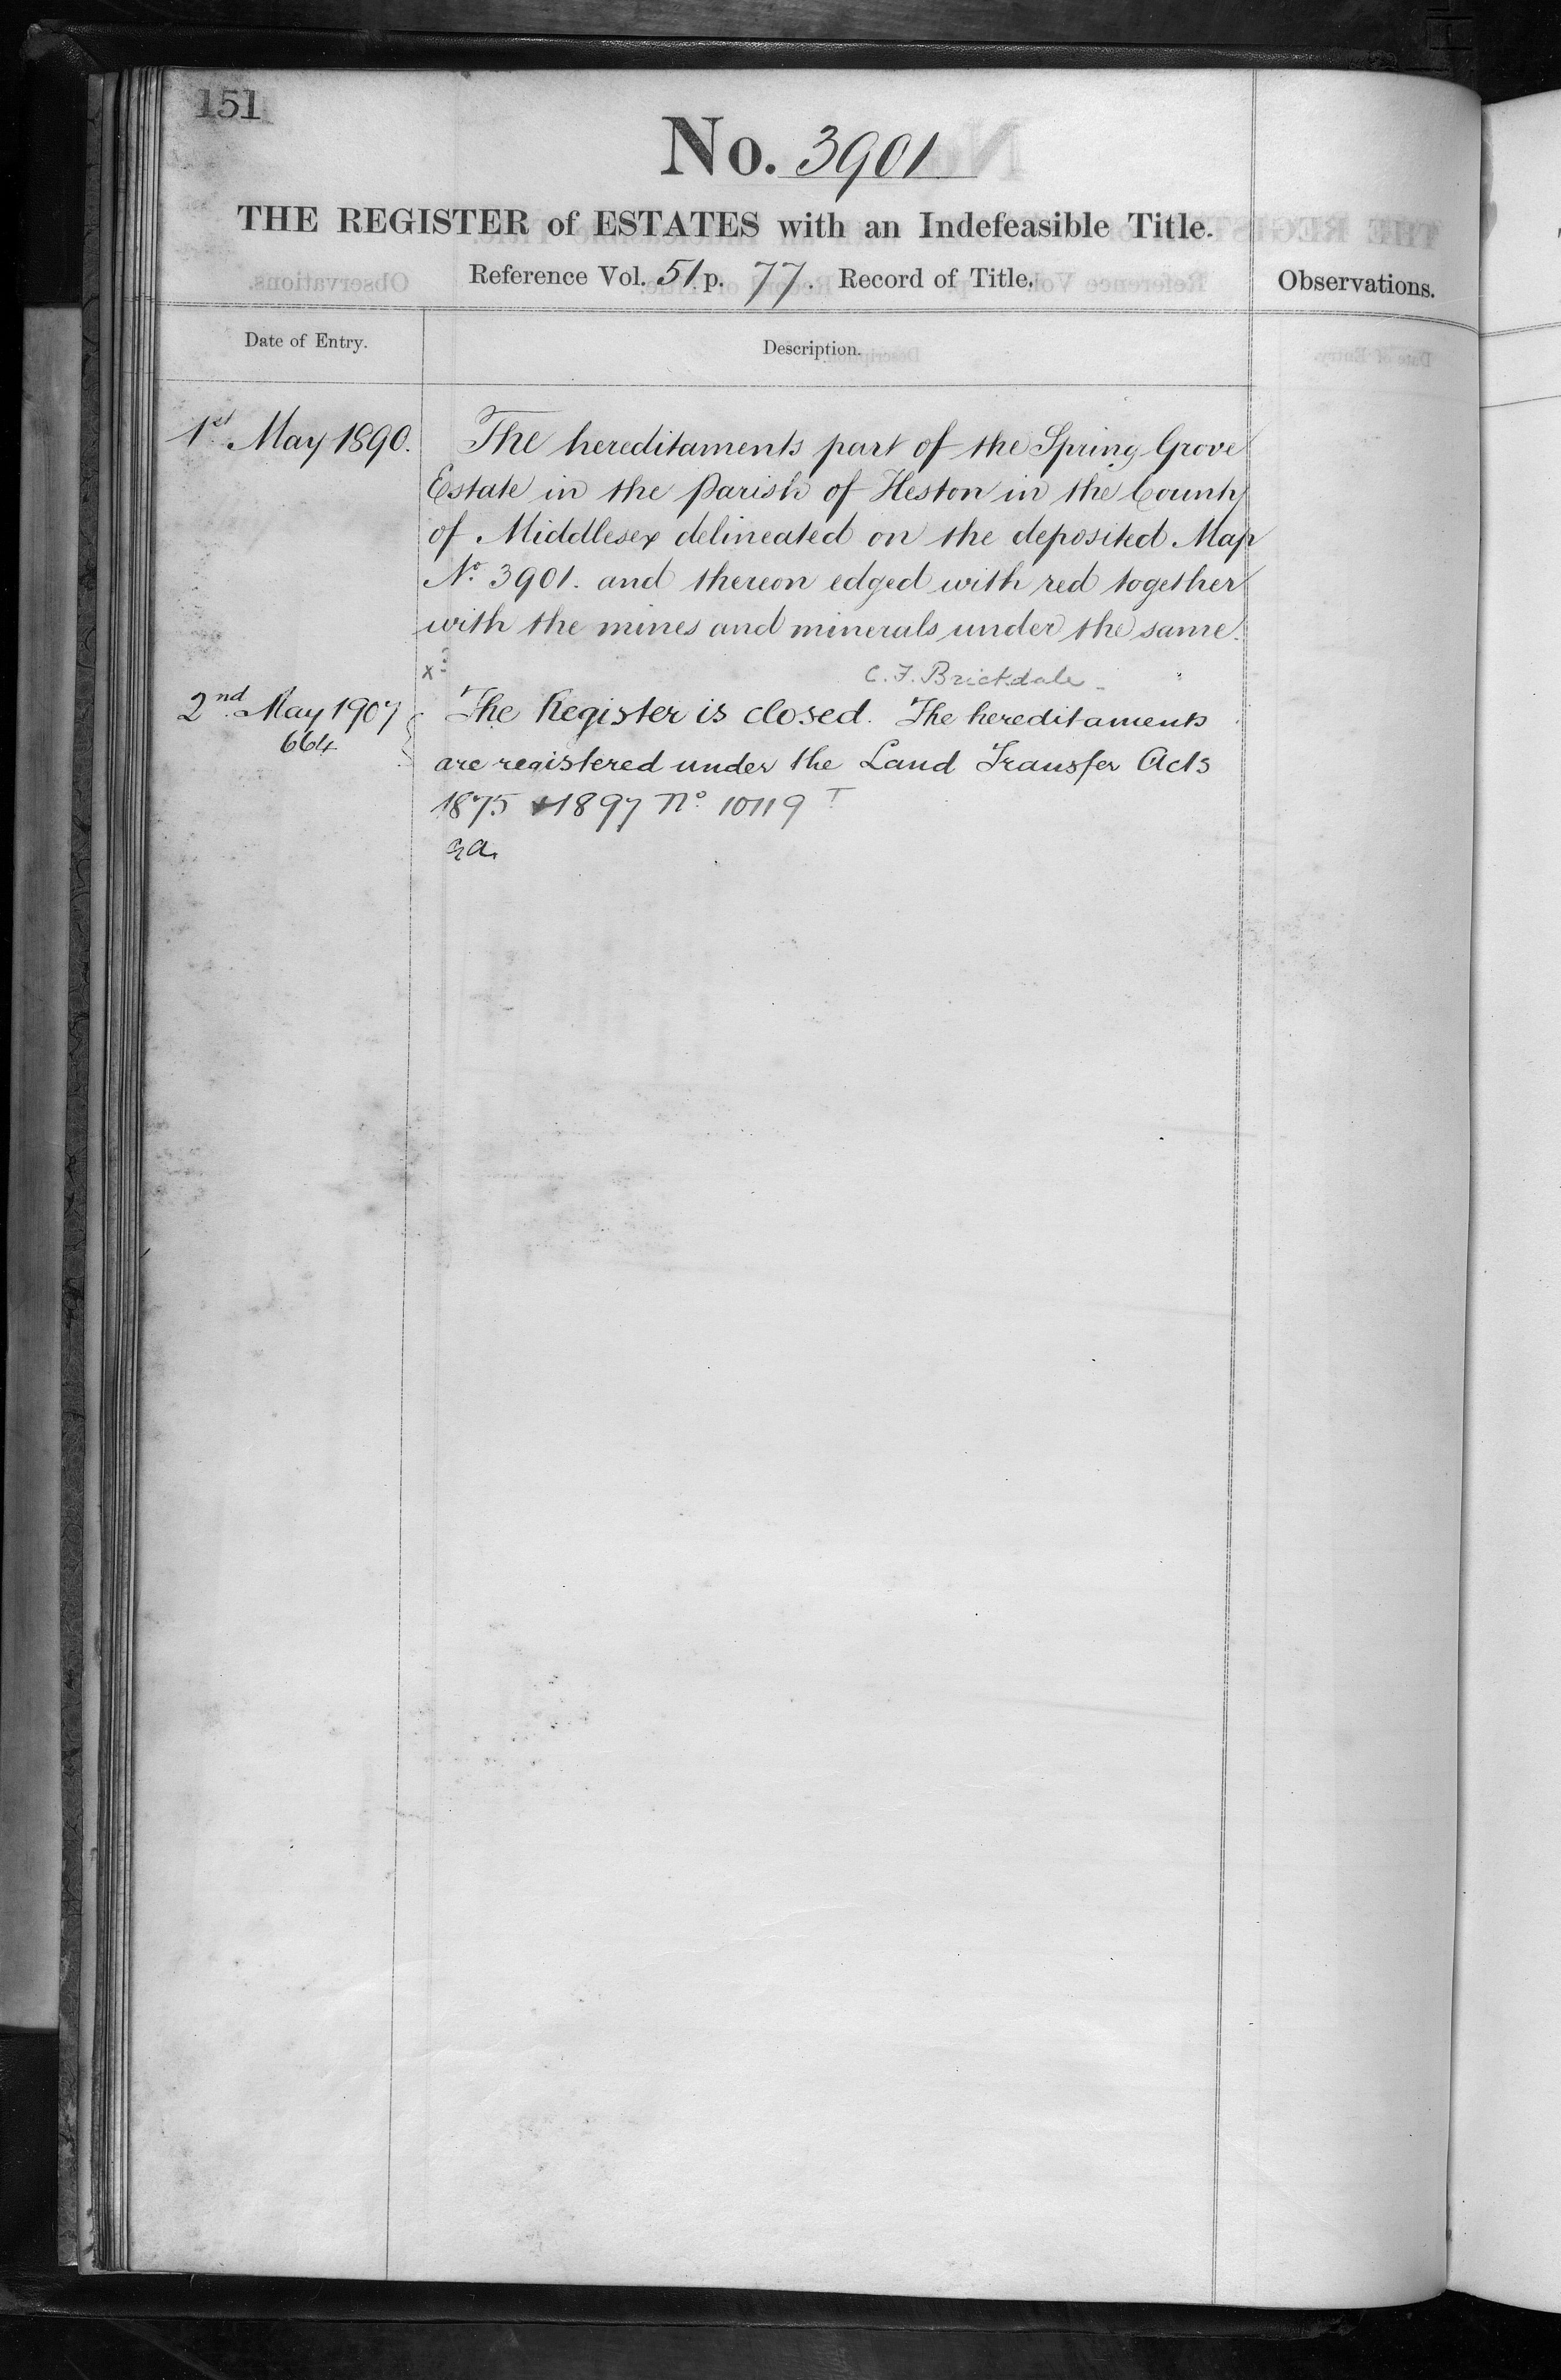 151
No. 3901
THE REGISTER of ESTATES with an Indefeasible Title.
Reference Vol. 51. p. 77. Record of Title.
Observations.
Date of Entry.
Description.
1st May 1890.
The hereditaments part of the Spring Grove
Estate in the Parish of Heston in the County
of Middlesex delineated on the deposited Map
No. 3901. and thereon edged with red together
with the mines and minerals under the same.
C. F. Brickdale
2nd May 1907
664
The Register is closed. The hereditaments
are registered under the Land Transfer Acts
1875 & 1897 No 10119